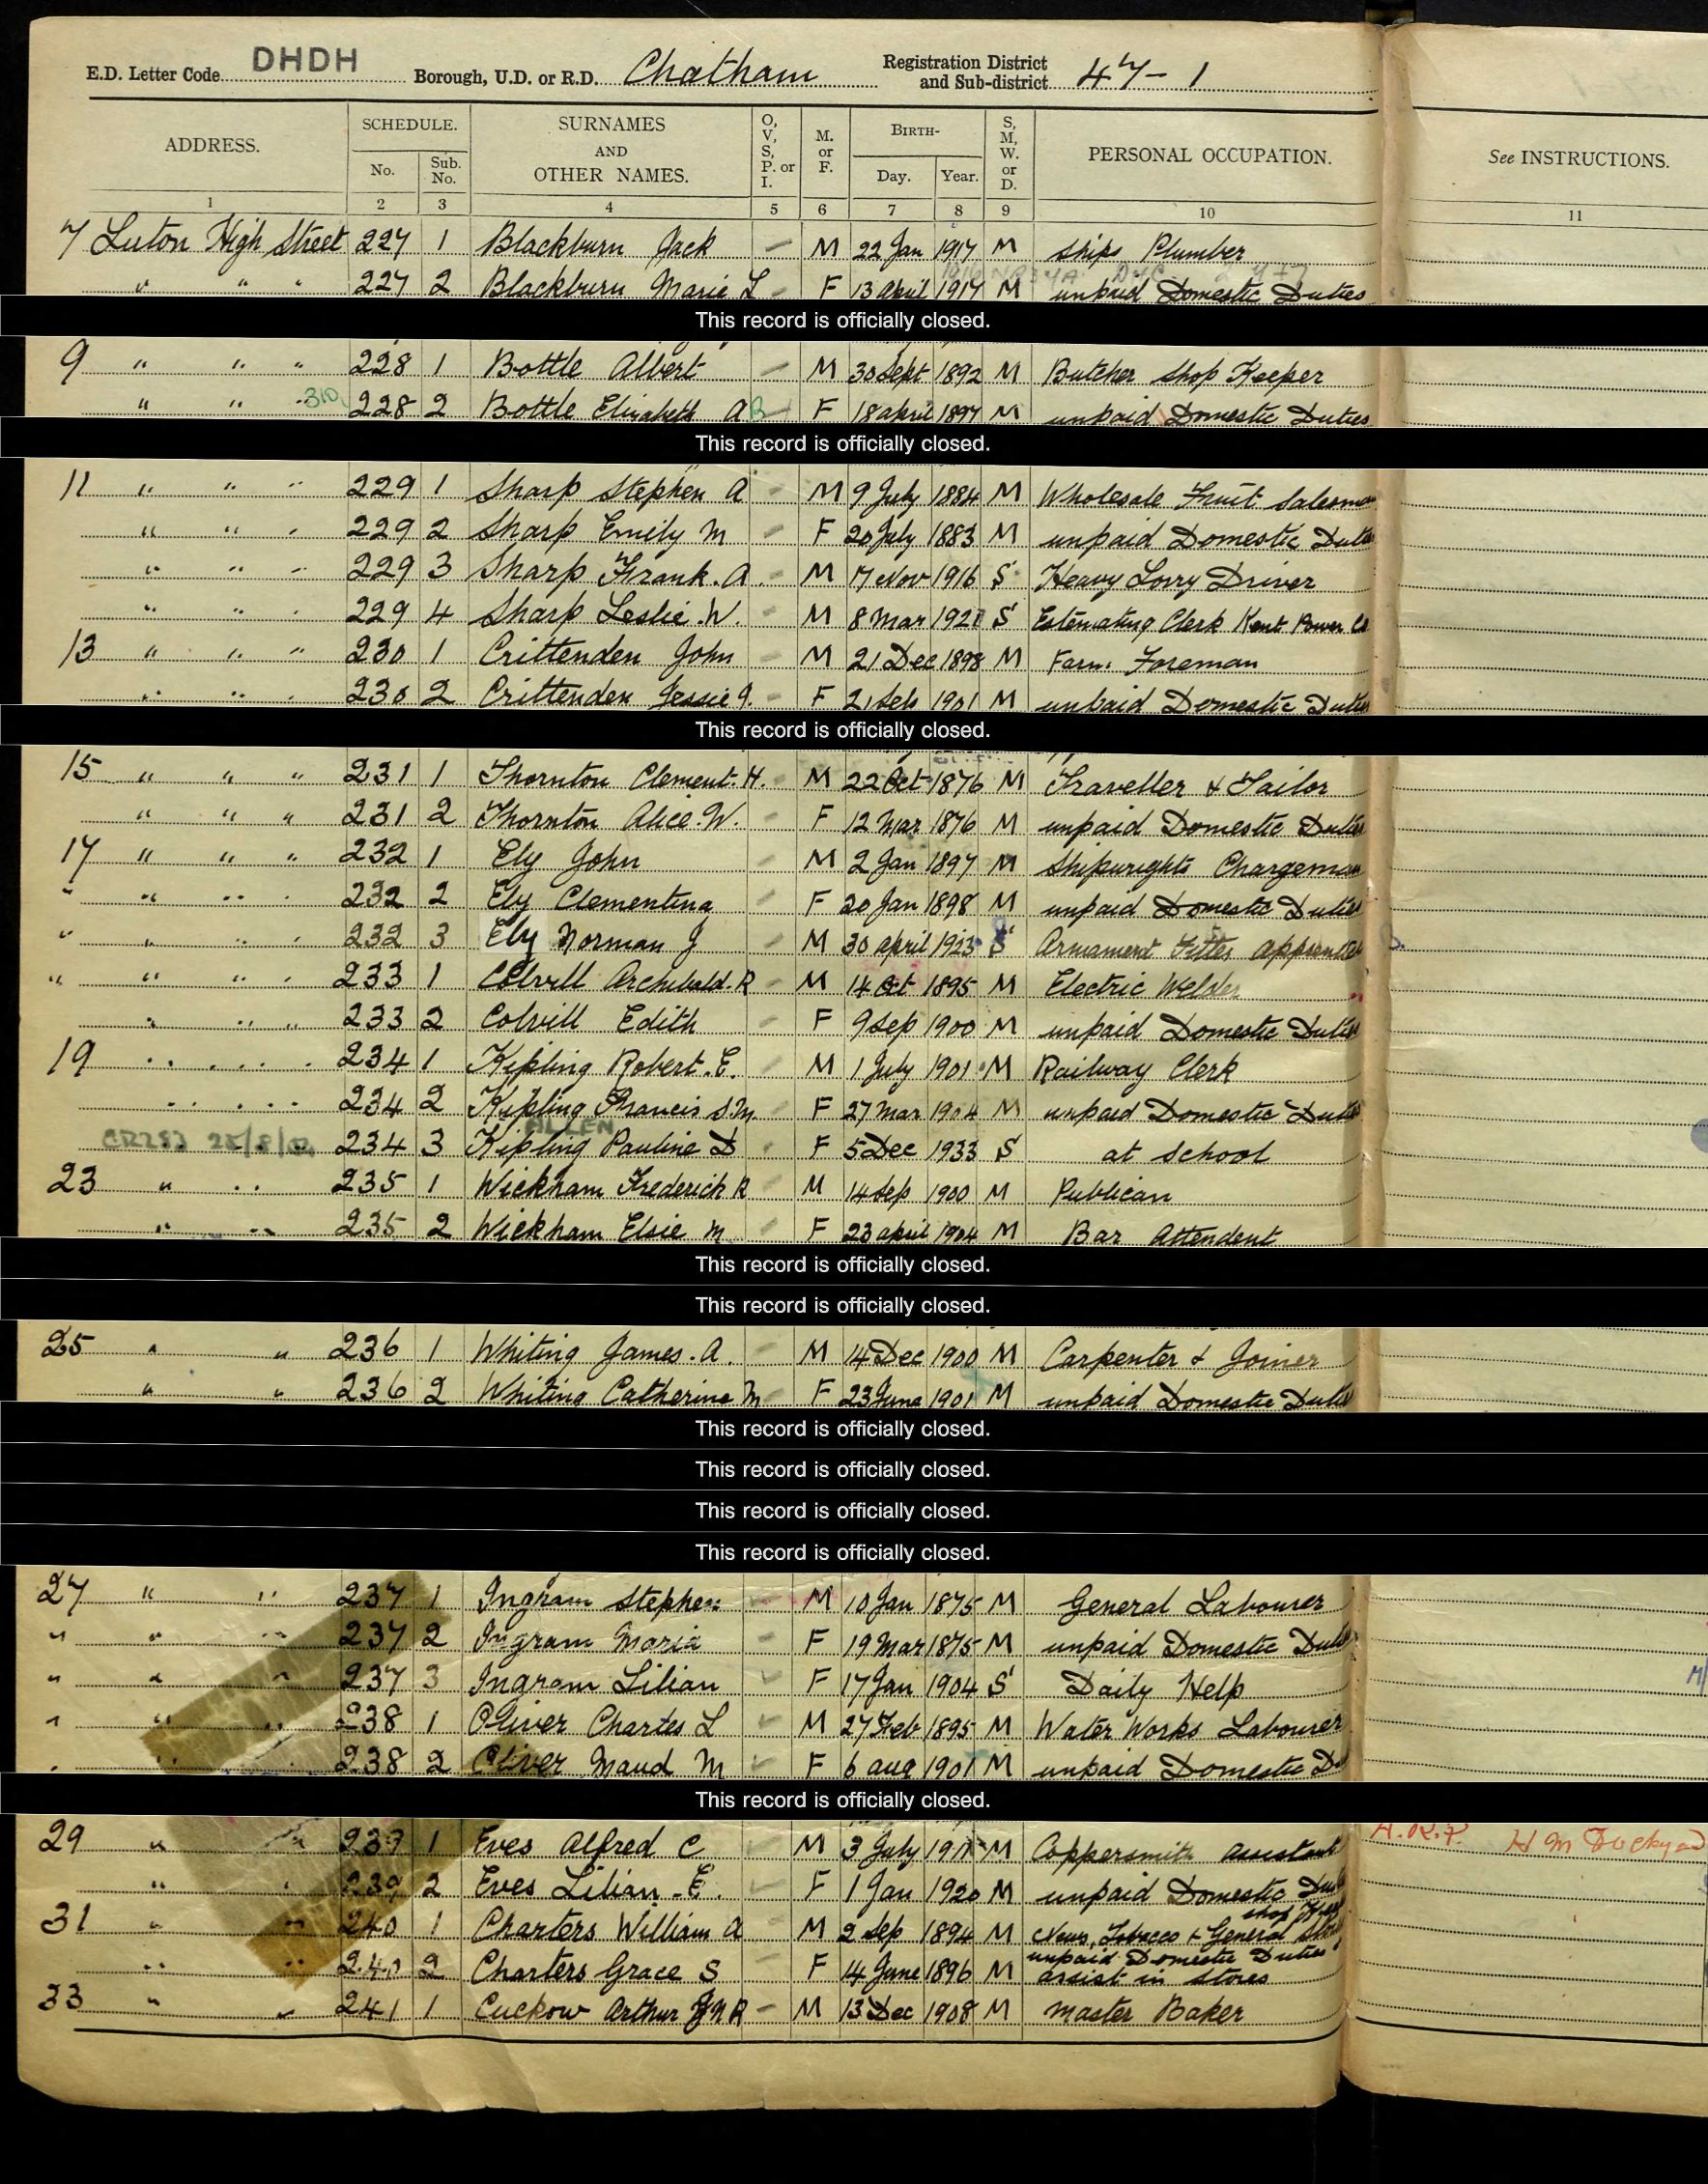 E.D. Letter Code DHDH Borough, U.D. or R.D. Chatham Registration District and Sub-district 47-1
ADDRESS. SCHEDULE. No. Sub. No. SURNAMES AND OTHER NAMES. O, V, S, P. or I. M. or F. BIRTH- Day. Year. S, M, W. or D. PERSONAL OCCUPATION. See INSTRUCTIONS.
1 2 3 4 5 6 7 8 9 10 11
7 Luton High Street 227 1 Blackburn Jack - M 22 Jan 1917 M Ships Plumber
" " " 227 2 Blackburn Marie L - F 13 April 1917 M unpaid Domestic Duties
This record is officially closed.
9 " " " 228 1 Bottle Albert - M 30 Sept 1892 M Butcher Shop Keeper
" " " 310 228 2 Bottle Elizabeth A B - F 18 april 1897 M unpaid Domestic Duties
This record is officially closed.
11 " " " 229 1 Sharp Stephen A - M 9 July 1884 M Wholesale Fruit Salesman
" " " 229 2 Sharp Emily M - F 20 July 1883 M unpaid Domestic Duties
" " " 229 3 Sharp Frank. A. - M 17 Nov 1916 S Heavy Lorry Driver
" " " 229 4 Sharp Leslie. W. - M 8 Mar 1921 S Estemating Clerk Kent Power Co
13 " " " 230 1 Crittenden John - M 21 Dec 1898 M Farm Foreman
" " " 230 2 Crittenden Jessie - F 21 Feb 1901 M unpaid Domestic Duties
This record is officially closed.
15 " " " 231 1 Thornton Clement. H. - M 22 Oct 1876 M Traveller & Tailor
" " " 231 2 Thornton Alice. W. - F 12 Mar 1876 M unpaid Domestic Duties
17 " " " 232 1 Ely John - M 2 Jan 1897 M Shipwrights Chargeman
" " " " 232 2 Ely Clementina - F 20 Jan 1898 M unpaid Domestic Duties
" " " " 232 3 Ely Norman J - M 30 april 1923 S Armament Fitter Apprentice
" " " " 233 1 Colvill Archibald. R - M 14 Oct 1895 M Electric Welder
" " " 233 2 Colvill Edith - F 9 Sep 1900 M unpaid Domestic Duties
19 " " " 234 1 Kipling Robert. E. - M 1 July 1901 M Railway Clerk
" " " 234 2 Kipling Francis S.M. - F 27 Mar 1904 M unpaid Domestic Duties
ALLEN
CR283 234 3 Kipling Pauline D - F 5 Dec 1933 S at School
23 " " 235 1 Wickham Frederich R - M 14 Sep 1900 M Publican
" " 235 2 Wickham Elsie M - F 23 april 1904 M Bar Attendent
This record is officially closed.
This record is officially closed.
25 " " 236 1 Whiting James. A. - M 14 Dec 1900 M Carpenter & Joiner
" " 236 2 Whiting Catherine M - F 23 June 1901 M unpaid Domestic Duties
This record is officially closed.
This record is officially closed.
This record is officially closed.
This record is officially closed.
27 " " 237 1 Ingram Stephen - M 10 Jan 1875 M General Labourer
" " " 237 2 Ingram Maria - F 19 Mar 1875 M unpaid Domestic Duties
" " " 237 3 Ingram Lilian F 17 Jan 1904 S Daily Help
" " " 238 1 Oliver Charles L M 27 Feb 1895 M Water Works Labourer
" " " 238 2 Oliver Maud M F 6 aug 1901 M unpaid Domestic
This record is officially closed.
29 " " 239 1 Eves Alfred C M 3 July 1911 M Coppersmith assistant A.R.P. H M Dockyard
" " 239 2 Eves Lilian. E. F 1 Jan 1920 M unpaid Domestic
31 " " 240 1 Charters William A M 2 Sep 1894 M News, Tobacco & General Shop
" " 240 2 Charters Grace S F 14 June 1896 M unpaid Domestic Duties assist in Stores
33 " " 241 1 Cuckow Arthur - M 13 Dec 1908 M Master Baker